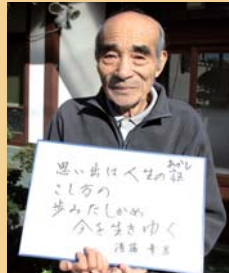 思い出は人生の証
あかし
こし方の
歩みたしかめ
今を生きゆく